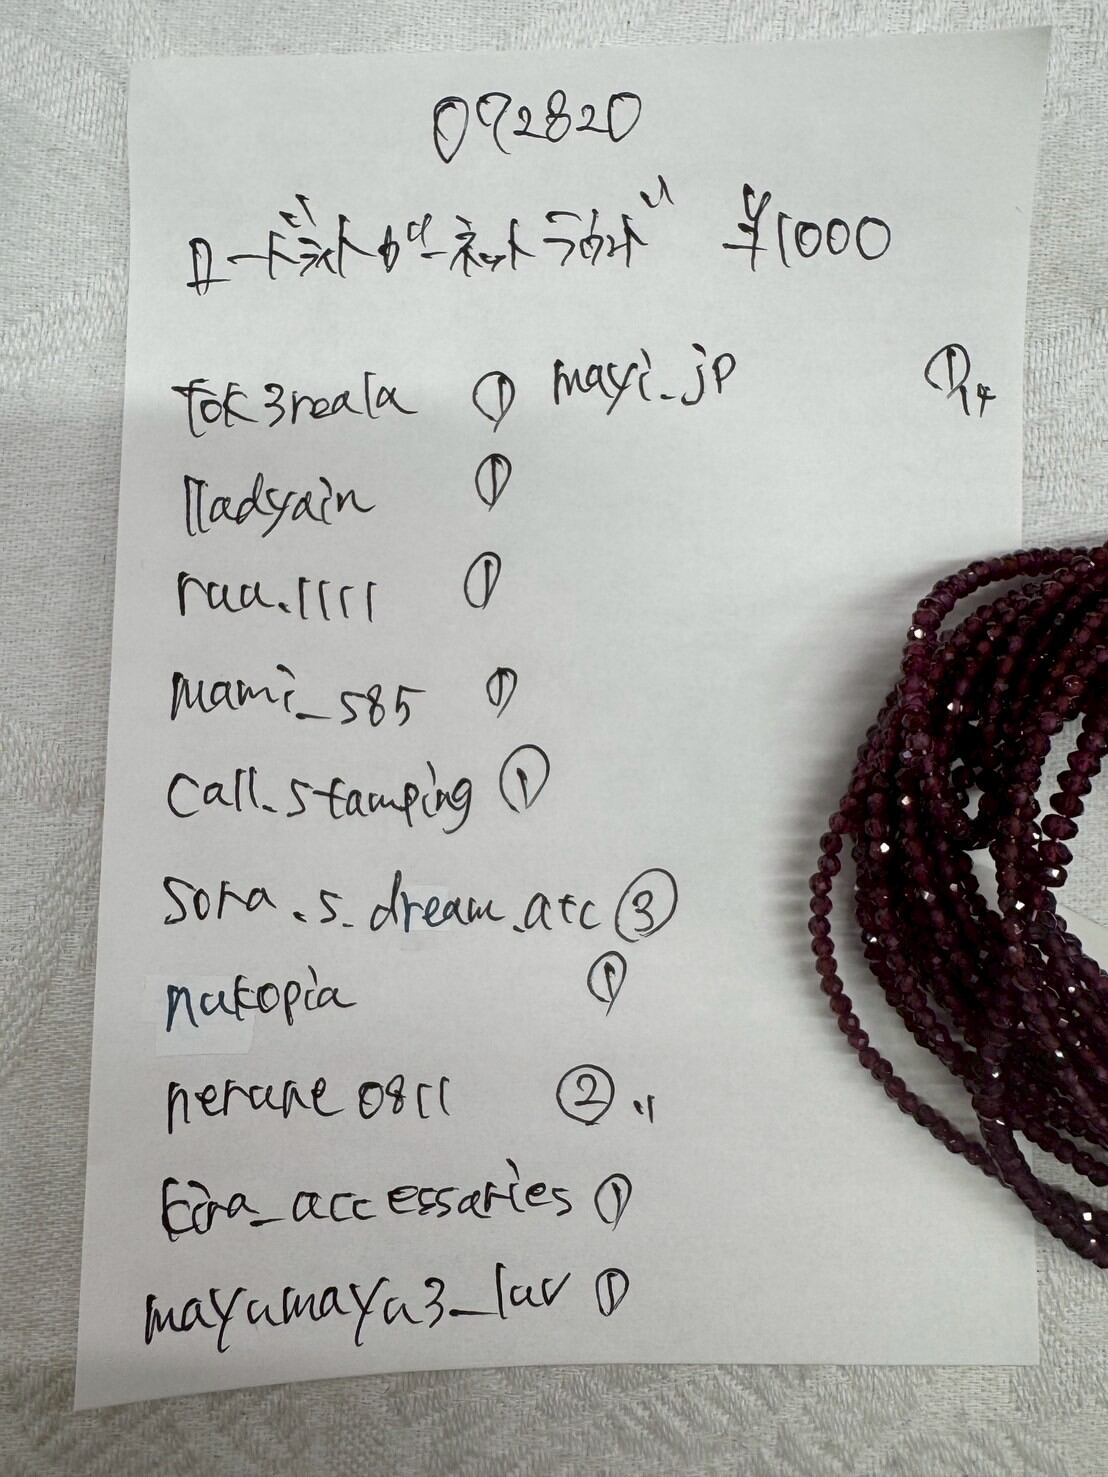 092820
ロードライトガーネットラウンド ¥1000
tok3reala ① mayi_jp ①14
lladyain ①
raa.1111 ①
mami_585 ①
call_stamping ①
sora.s.dream.acc ③
nakopia ①
nerune0811 ② 11
kira_accessaries ①
mayumayu3_luv ①